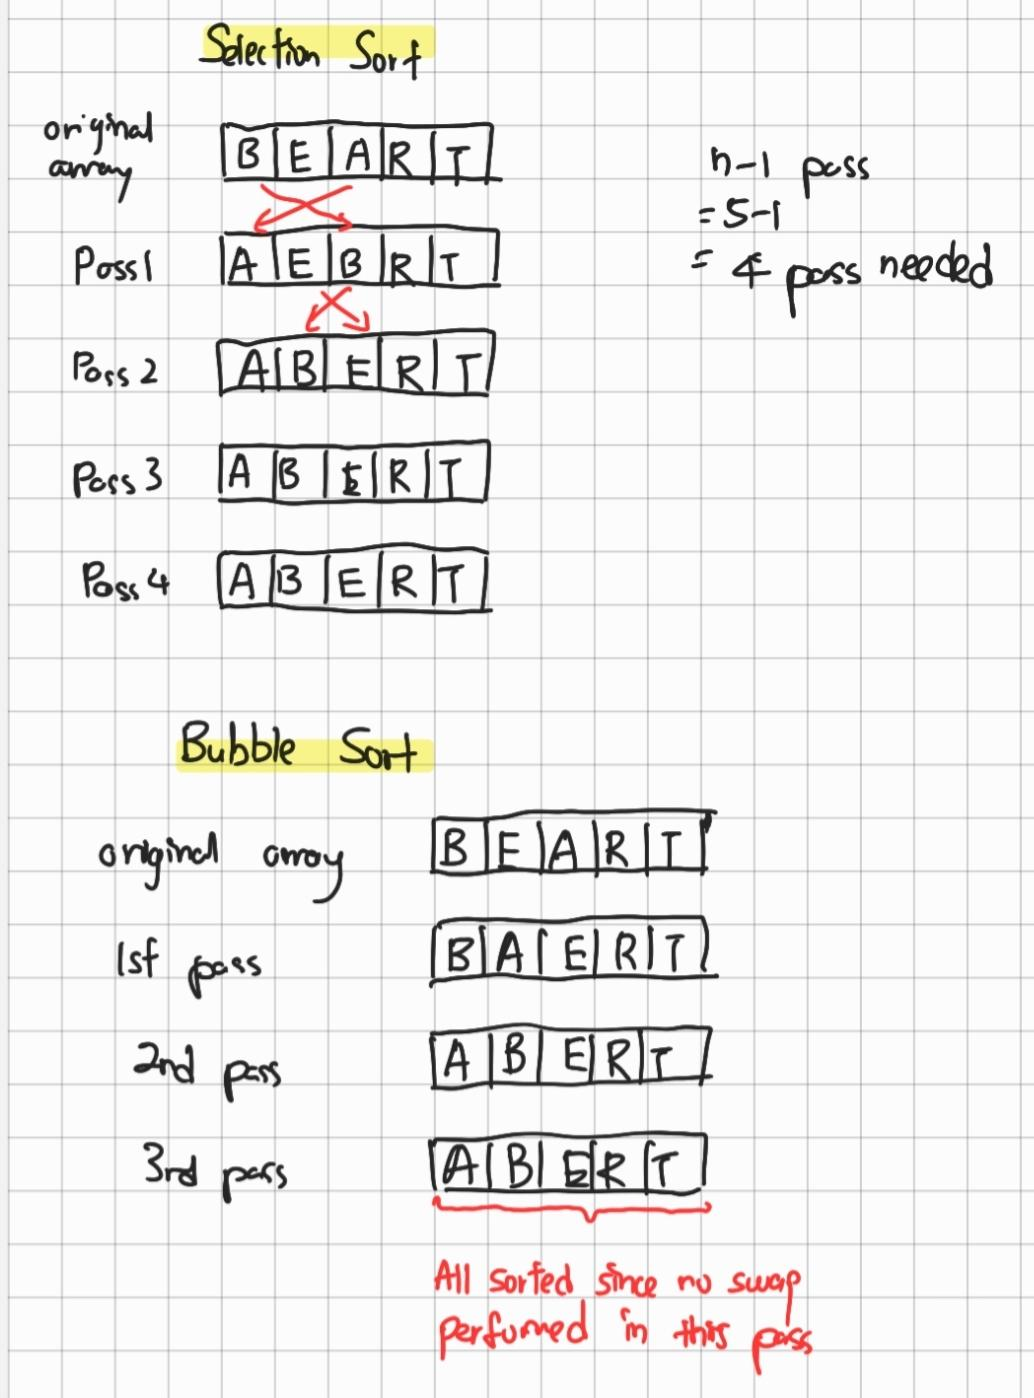 Selection Sort
original
array
B E A R T
n-1 pass
= 5-1
= 4 pass needed
Pass 1
A E B R T
Pass 2
A B E R T
Pass 3
A B E R T
Pass 4
A B E R T
Bubble Sort
original array
B E A R T
1st pass
B A E R T
2nd pass
A B E R T
3rd pass
A B E R T
All sorted since no swap
perfumed in this pass